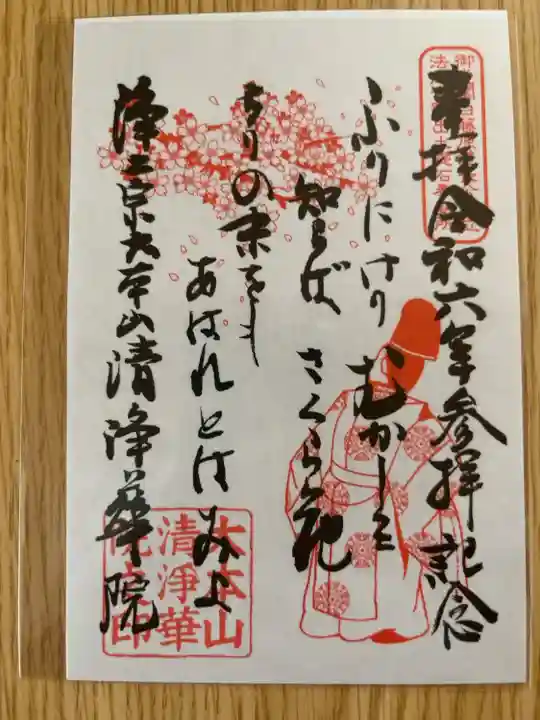 奉拝令和六年参拝記念
ふりにけりむかしを
知らばさくら花
ちりの末をも
あはれとはみよ
浄土宗大本山清浄華院
大本山
清浄華
院之印